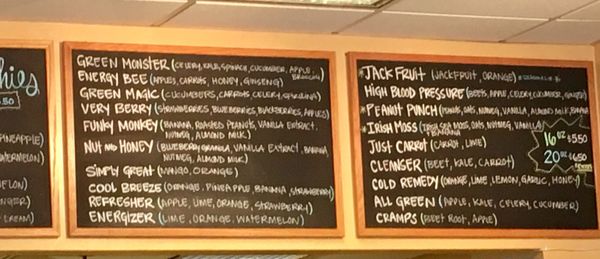 hies
5.50
PINEAPPLE)
WATERMELON)
MELON)
GINGER)
CREAM)
GREEN MONSTER (CELERY, KALE, SPINACH, CUCUMBER, APPLE,
ENERGY BEE (APPLES, CARROTS, HONEY, GINSENG)
GREEN MAGIC (CUCUMBERS, CARROTS, CELERY, SPIRULINA)
VERY BERRY (STRAWBERRIES, BLUEBERRIES, BLACKBERRIES, APPLES)
FUNKY MONKEY (BANANA, ROASTED PEANUTS, VANILLA EXTRACT,
NUTMEG, ALMOND MILK)
NUT AND HONEY (BLUEBERRY, GRANOLA, VANILLA EXTRACT, BANANA,
NUTMEG, ALMOND MILK)
SIMPLY GREAT (MANGO, ORANGE)
COOL BREEZE (ORANGE, PINEAPPLE, BANANA, STRAWBERRY)
REFRESHER (APPLE, LIME, ORANGE, STRAWBERRY)
ENERGIZER (LIME, ORANGE, WATERMELON)
*JACK FRUIT (JACKFRUIT, ORANGE)
HIGH BLOOD PRESSURE (BEETS, APPLE, CELERY, CUCUMBER, GINGER)
*PEANUT PUNCH (PEANUTS, OATS, NUTMEG, VANILLA, ALMOND MILK, BANANA)
*IRISH MOSS (IRISH SEA MOSS, OATS, NUTMEG, VANILLA)
BANANA
JUST CARROT (CARROT, LIME)
CLEANSER (BEET, KALE, CARROT)
COLD REMEDY (ORANGE, LIME, LEMON, GARLIC, HONEY)
ALL GREEN (APPLE, KALE, CELERY, CUCUMBER)
CRAMPS (BEET ROOT, APPLE)
16 OZ $5.50
20 OZ $6.50